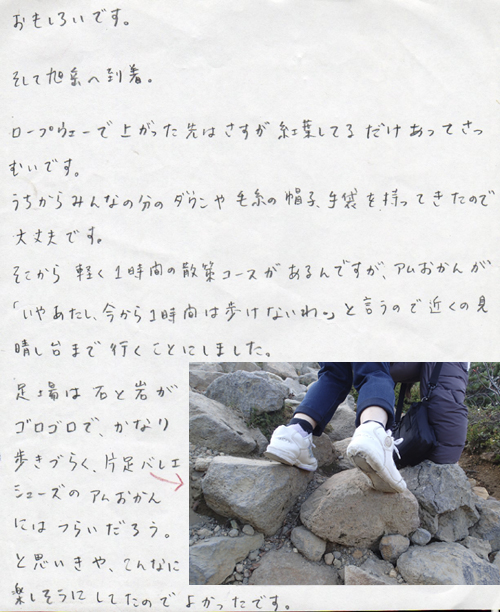 おもしろいです。
そして旭岳へ到着。
ロープウェーで上がった先はさすが紅葉してるだけあってさっ
むいです。
うちからみんなの分のダウンや毛糸の帽子、手袋を持ってきたので
大丈夫です。
そこから軽く1時間の散策コースがあるんですが、アムおかんが
「いやあたし、今から1時間は歩けないわ。」と言うので近くの見
晴し台まで行くことにしました。
足場は石と岩が
ゴロゴロで、かなり
歩きづらく、片足バレエ
シューズのアムおかん
にはつらいだろう。
と思いきや、こんなに
楽しそうにしてたのでよかったです。